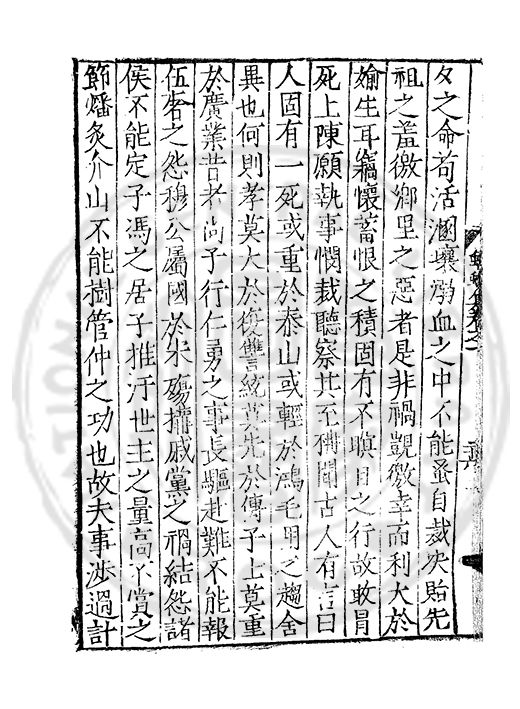 夕之命苟活溷壤瀝血之中不能蚤自裁决貽先
祖之羞徼鄉里之惡者是非禍覬徼幸而利大於
媮生耳竊懷蓄恨之積固有不瞑目之行故敢冒
死上陳願執事憫裁聽察其至擁聞古人有言曰
人固有一死或重於泰山或輕於鴻毛用之趨舍
異也何則孝莫大於復讐統莫先於傳子上莫重
於廣業昔者尚子行仁勇之事長驅赴難不能報
伍奢之怨穆公屬國於宋殤攝戚黨之禍結怨諸
侯不能定子馮之居子推汙世主之量高不賞之
節燔炙介山不能樹管仲之功也故夫事涉過計